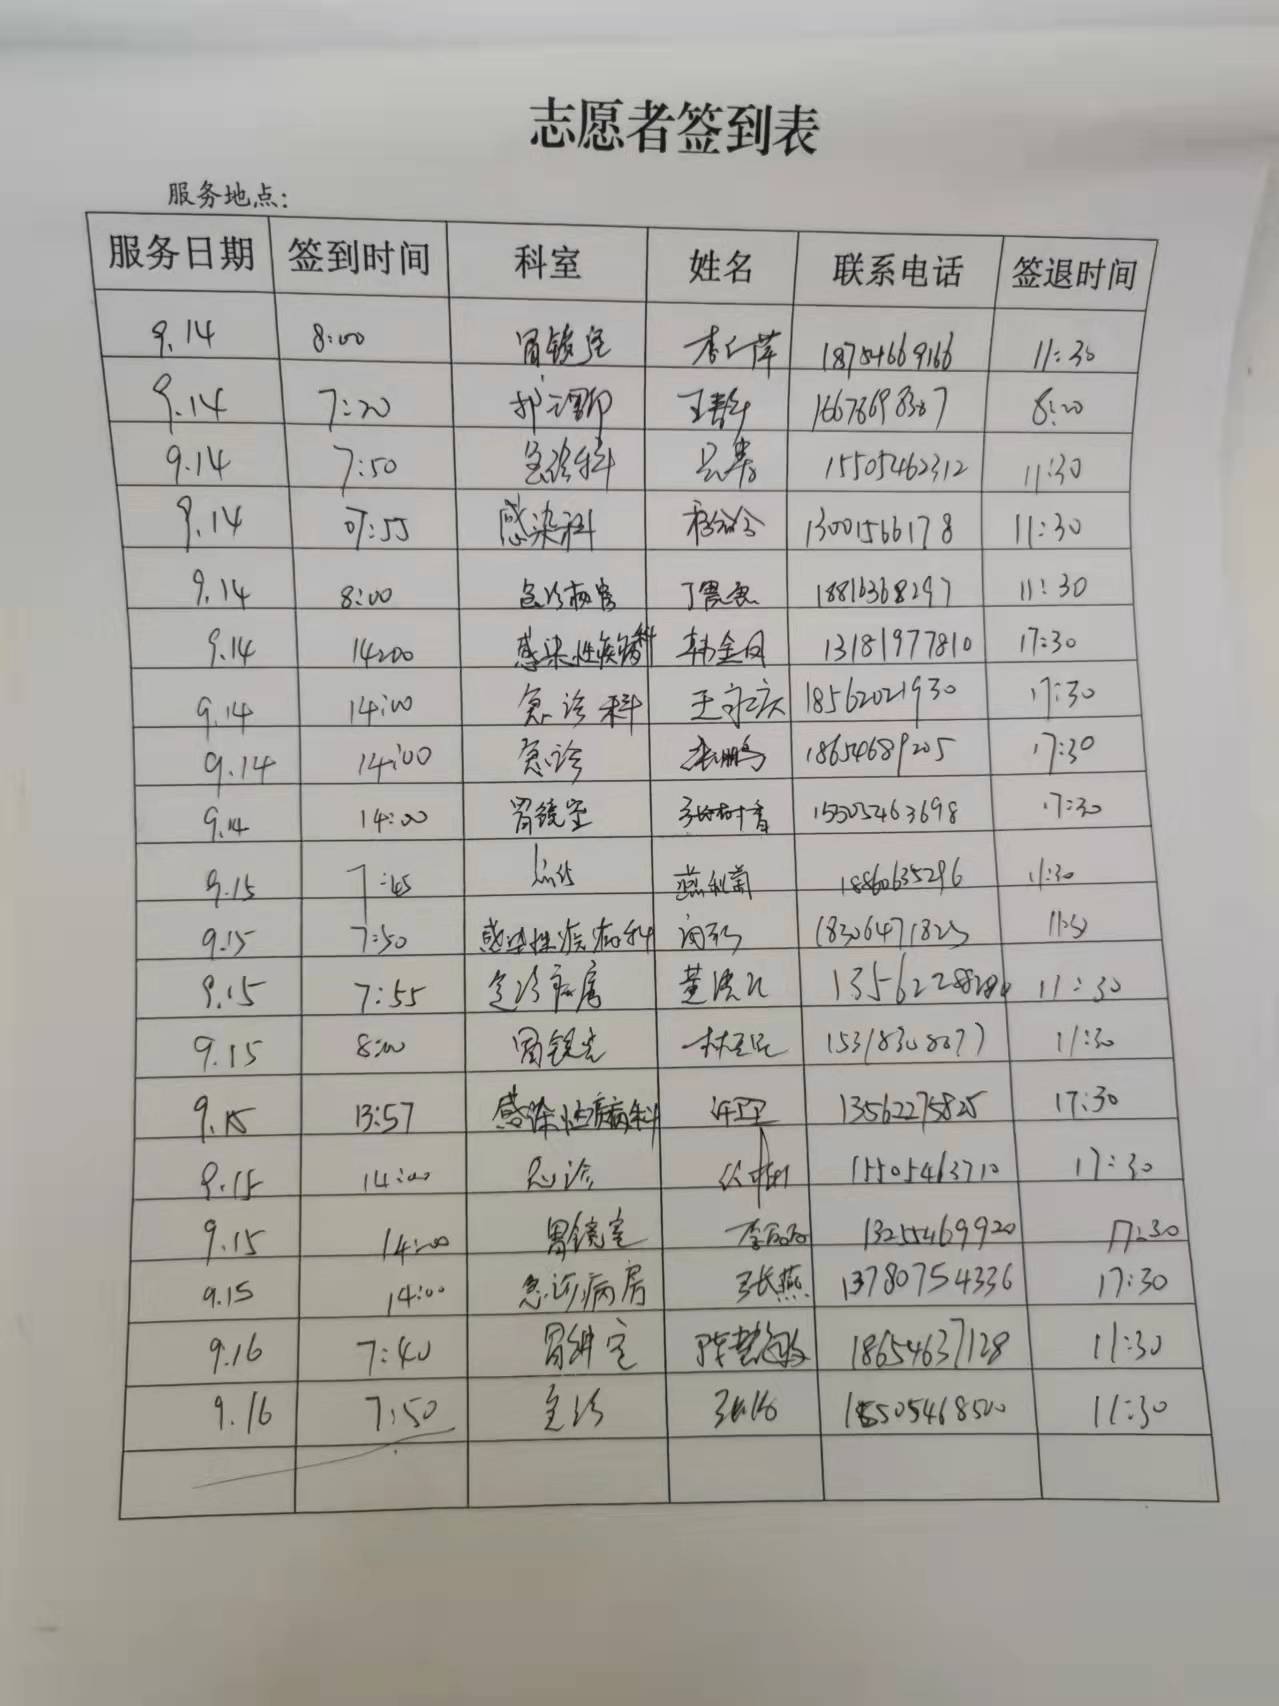 志愿者签到表
服务地点：
服务日期 签到时间 科室 姓名 联系电话 签退时间
9.14 8:00 胃镜室 18754669166 11:30
9.14 7:20 护理部 8:20
9.14 7:50 急诊科 15505462312 11:30
9.14 07:55 感染科 13001566178 11:30
9.14 8:00 18816368297 11:30
9.14 14:00 感染性疾病科 韩金凤 13181977810 17:30
9.14 14:00 急诊科 王守庆 18562021930 17:30
9.14 14:00 急诊 张鹏 18654689205 17:30
9.14 14:00 胃镜室 张树香 15505463698 17:30
9.15 7:45 燕利菊 18860635296 11:30
9.15 7:50 感染性疾病科 11:30
9.15 7:55 急诊病房 11:30
9.15 8:00 胃镜室 11:30
9.15 13:57 感染性疾病科 13562275825 17:30
9.15 14:00 急诊 15505463710 17:30
9.15 14:00 胃镜室 13255469920 17:30
9.15 14:00 急诊病房 张燕 13780754336 17:30
9.16 7:40 18654637128 11:30
9.16 7:50 急诊 11:30